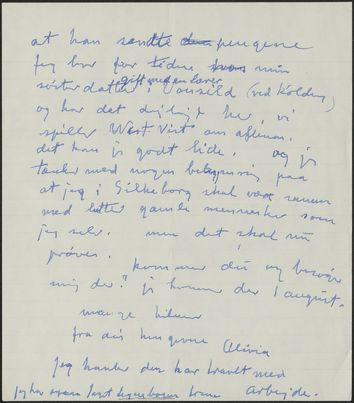 at han sendte pengene
Jeg bor for tiden hos min
gift med en lærer
søsterdatter i Vonsild (ved Kolding)
og har det dejligt her, vi
spiller West Virt om aftenen.
det kan jeg godt lide. og jeg
tænker med nogen betagning paa
at jeg i Silkeborg skal være sammen
med lutter gamle mennesker som
jeg selv. men det skal nu
prøves.
kommer du og besøger
mig der? jeg kommer der 1 august.
mange hilsner
fra din hengivne
Olivia
Jeg tænker du har travlt med
Arbejde.
jeg har læst bogen